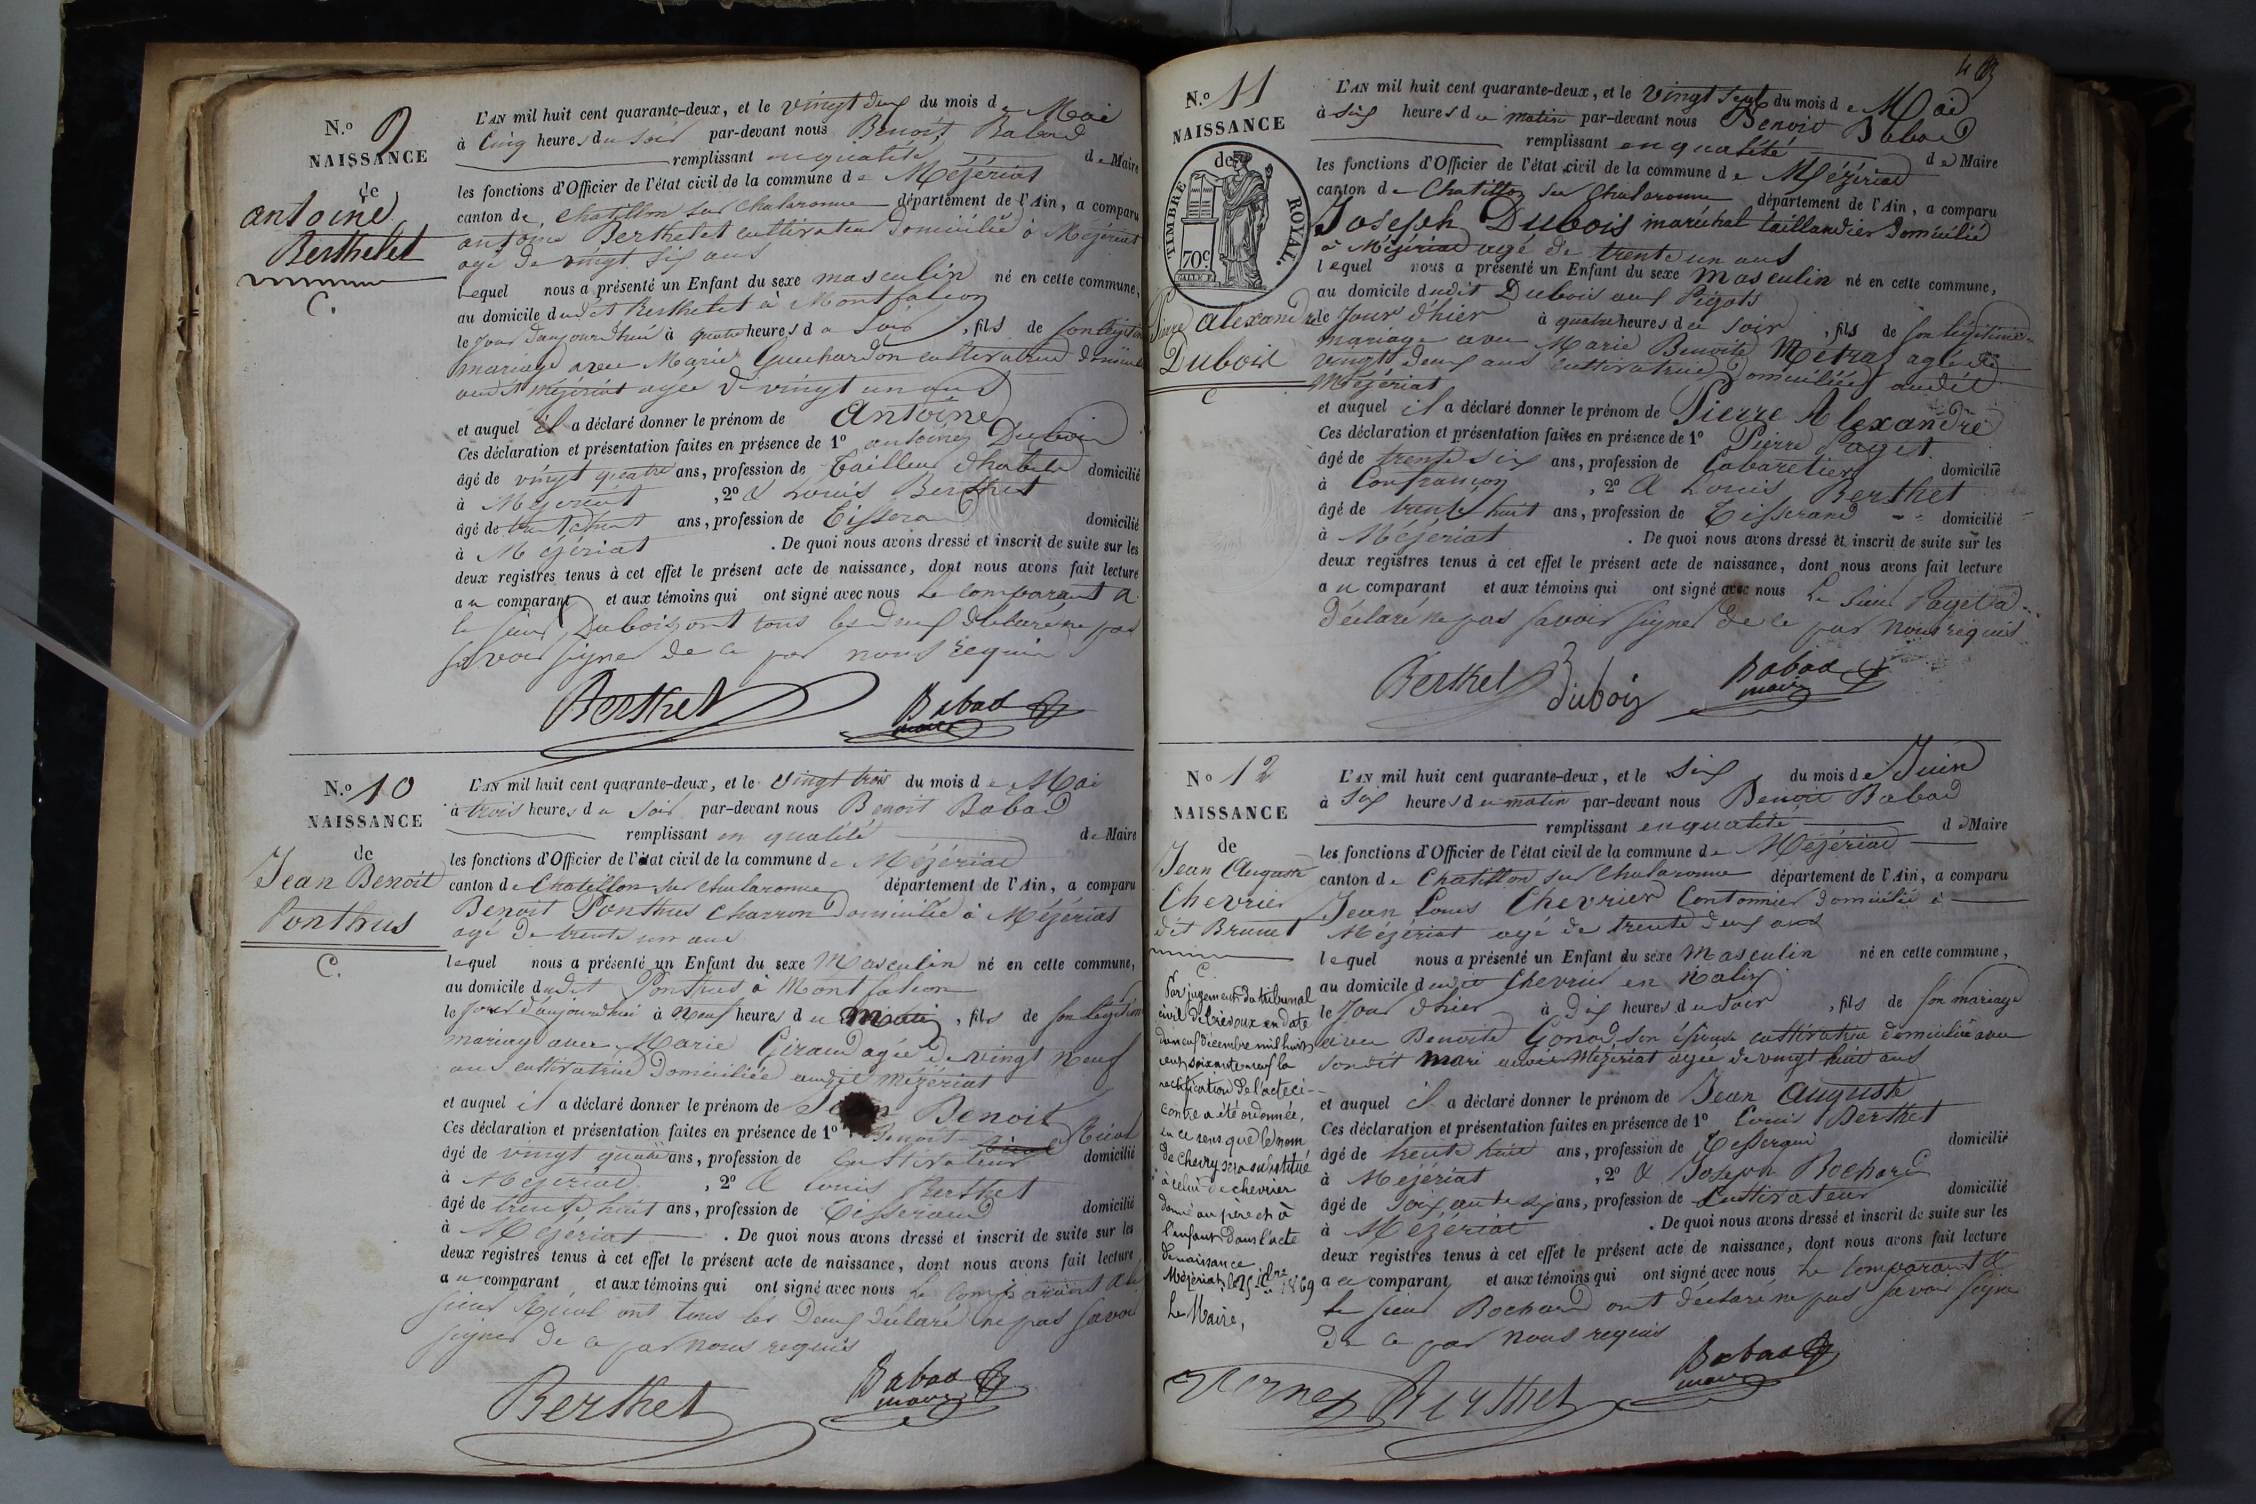 N.º 9
NAISSANCE
de
antoine
Berthelet
C.
L'AN mil huit cent quarante-deux, et le vingt deux du mois de Mai
à Cinq heures du soir par-devant nous Benoit Babad
remplissant en qualité de Maire
les fonctions d'Officier de l'état civil de la commune de Mézériat
canton de Chatillon sur Chalaronne département de l'Ain, a comparu
antoine Berthelet cultivateur domicilié à Mézériat
agé de vingt six ans
lequel nous a présenté un Enfant du sexe masculin né en cette commune,
au domicile dudit Berthelet à Montfalcon
le jour d'aujourdhui à quatre heures du Soir, fils de son légitime
mariage avec Marie Guichardon cultivatrice domiciliée
audit mézériat agée de vingt un ans
et auquel il a déclaré donner le prénom de Antoine
Ces déclaration et présentation faites en présence de 1º antoine Dubois
âgé de vingt quatre ans, profession de Tailleur d'habits domicilié
à Mézériat, 2º & Louis Berthet
âgé de trente huit ans, profession de Tisserand domicilié
à Mézériat. De quoi nous avons dressé et inscrit de suite sur les
deux registres tenus à cet effet le présent acte de naissance, dont nous avons fait lecture
au comparant et aux témoins qui ont signé avec nous Le comparant &
le sieur Dubois ont tous les deux déclaré ne pas
savoir signer de ce par nous requis
Berthet Babad
maire
N.º 10
NAISSANCE
de
Jean Benoit
Ponthus
C.
L'AN mil huit cent quarante-deux, et le vingt trois du mois de Mai
à trois heures du Soir par-devant nous Benoit Babad
remplissant en qualité de Maire
les fonctions d'Officier de l'état civil de la commune de Mézériat
canton de Chatillon sur Chalaronne département de l'Ain, a comparu
Benoit Ponthus Charron domicilié à Mézériat
agé de trente un ans
lequel nous a présenté un Enfant du sexe Masculin né en cette commune,
au domicile dudit Ponthus à Montfalcon
le jour d'aujourdhui à Neuf heures du Matin, fils de son légitime
mariage avec Marie Giraud agée de vingt neuf
ans cultivatrice domiciliée audit mézériat
et auquel il a déclaré donner le prénom de Jean Benoit
Ces déclaration et présentation faites en présence de 1º Benoit
âgé de vingt quatre ans, profession de Cultivateur domicilié
à Mézériat, 2º & Louis Berthet
âgé de trente huit ans, profession de Tisserand domicilié
à Mézériat. De quoi nous avons dressé et inscrit de suite sur les
deux registres tenus à cet effet le présent acte de naissance, dont nous avons fait lecture
au comparant et aux témoins qui ont signé avec nous Le Comparant & le
sieur ont tous les Deux déclaré ne pas Savoir
signer de ce par nous requis
Berthet Babad
maire
N.º 11
NAISSANCE
de
TIMBRE ROYAL.
70c
Pierre alexandre
Dubois
C
L'AN mil huit cent quarante-deux, et le vingt sept du mois de Mai
à six heures du matin par-devant nous Benoit Babad
remplissant en qualité de Maire
les fonctions d'Officier de l'état civil de la commune de Mézériat
canton de Chatillon sur Chalaronne département de l'Ain, a comparu
Joseph Dubois maréchal taillandier domicilié
à Mézériat agé de trente un ans
lequel nous a présenté un Enfant du sexe Masculin né en cette commune,
au domicile dudit Dubois aux
le Jour d'hier à quatre heures du soir, fils de son légitime
mariage avec Marie Benoite Métras agée de
vingt deux ans cultivatrice domiciliée audit
Mézériat
et auquel il a déclaré donner le prénom de Pierre Alexandre
Ces déclaration et présentation faites en présence de 1º Pierre Paget
âgé de trente six ans, profession de Cabaretier domicilié
à Confrançon, 2º & Louis Berthet
âgé de trente huit ans, profession de Tisserand domicilié
à Mézériat. De quoi nous avons dressé et inscrit de suite sur les
deux registres tenus à cet effet le présent acte de naissance, dont nous avons fait lecture
au comparant et aux témoins qui ont signé avec nous Le Sieur Paget a
déclaré ne pas savoir signer de ce par nous requis
Berthet Dubois Babad
maire
Nº 12
NAISSANCE
de
Jean Auguste
Chevrier
dit Brunet
C.
Par jugement du tribunal
civil de Trévoux en date
du neuf décembre mil huit
cent soixante neuf la
rectification de l'acte ci-
contre a été ordonnée,
en ce sens que le nom
de Chevry sera substitué
à celui de chevrier
donné au père et à
l'enfant dans l'acte
de naissance
Mézériat, le 25 Xbre 1869
Le Maire,
L'AN mil huit cent quarante-deux, et le Six du mois de Juin
à Six heures du matin par-devant nous Benoit Babad
remplissant en qualité de Maire
les fonctions d'Officier de l'état civil de la commune de Mézériat
canton de Chatillon sur Chalaronne département de l'Ain, a comparu
Jean Louis Chevrier Cantonnier domicilié à
Mézériat agé de trente deux ans
lequel nous a présenté un Enfant du sexe Masculin né en cette commune,
au domicile dudit Chevrier en
le Jour d'hier à Dix heures du soir, fils de son mariage
avec Benoite Gonod son épouse cultivatrice domiciliée avec
son dit mari audit Mézériat agée de vingt huit ans
et auquel il a déclaré donner le prénom de Jean Auguste
Ces déclaration et présentation faites en présence de 1º Louis Berthet
âgé de trente huit ans, profession de Tisserand domicilié
à Mézériat, 2º & Joseph Bochard
âgé de Soixante six ans, profession de Cultivateur domicilié
à Mézériat. De quoi nous avons dressé et inscrit de suite sur les
deux registres tenus à cet effet le présent acte de naissance, dont nous avons fait lecture
au comparant et aux témoins qui ont signé avec nous Le Comparant &
le sieur Bochard ont déclaré ne pas Savoir signer
de ce par nous requis
Berthet Babad
maire